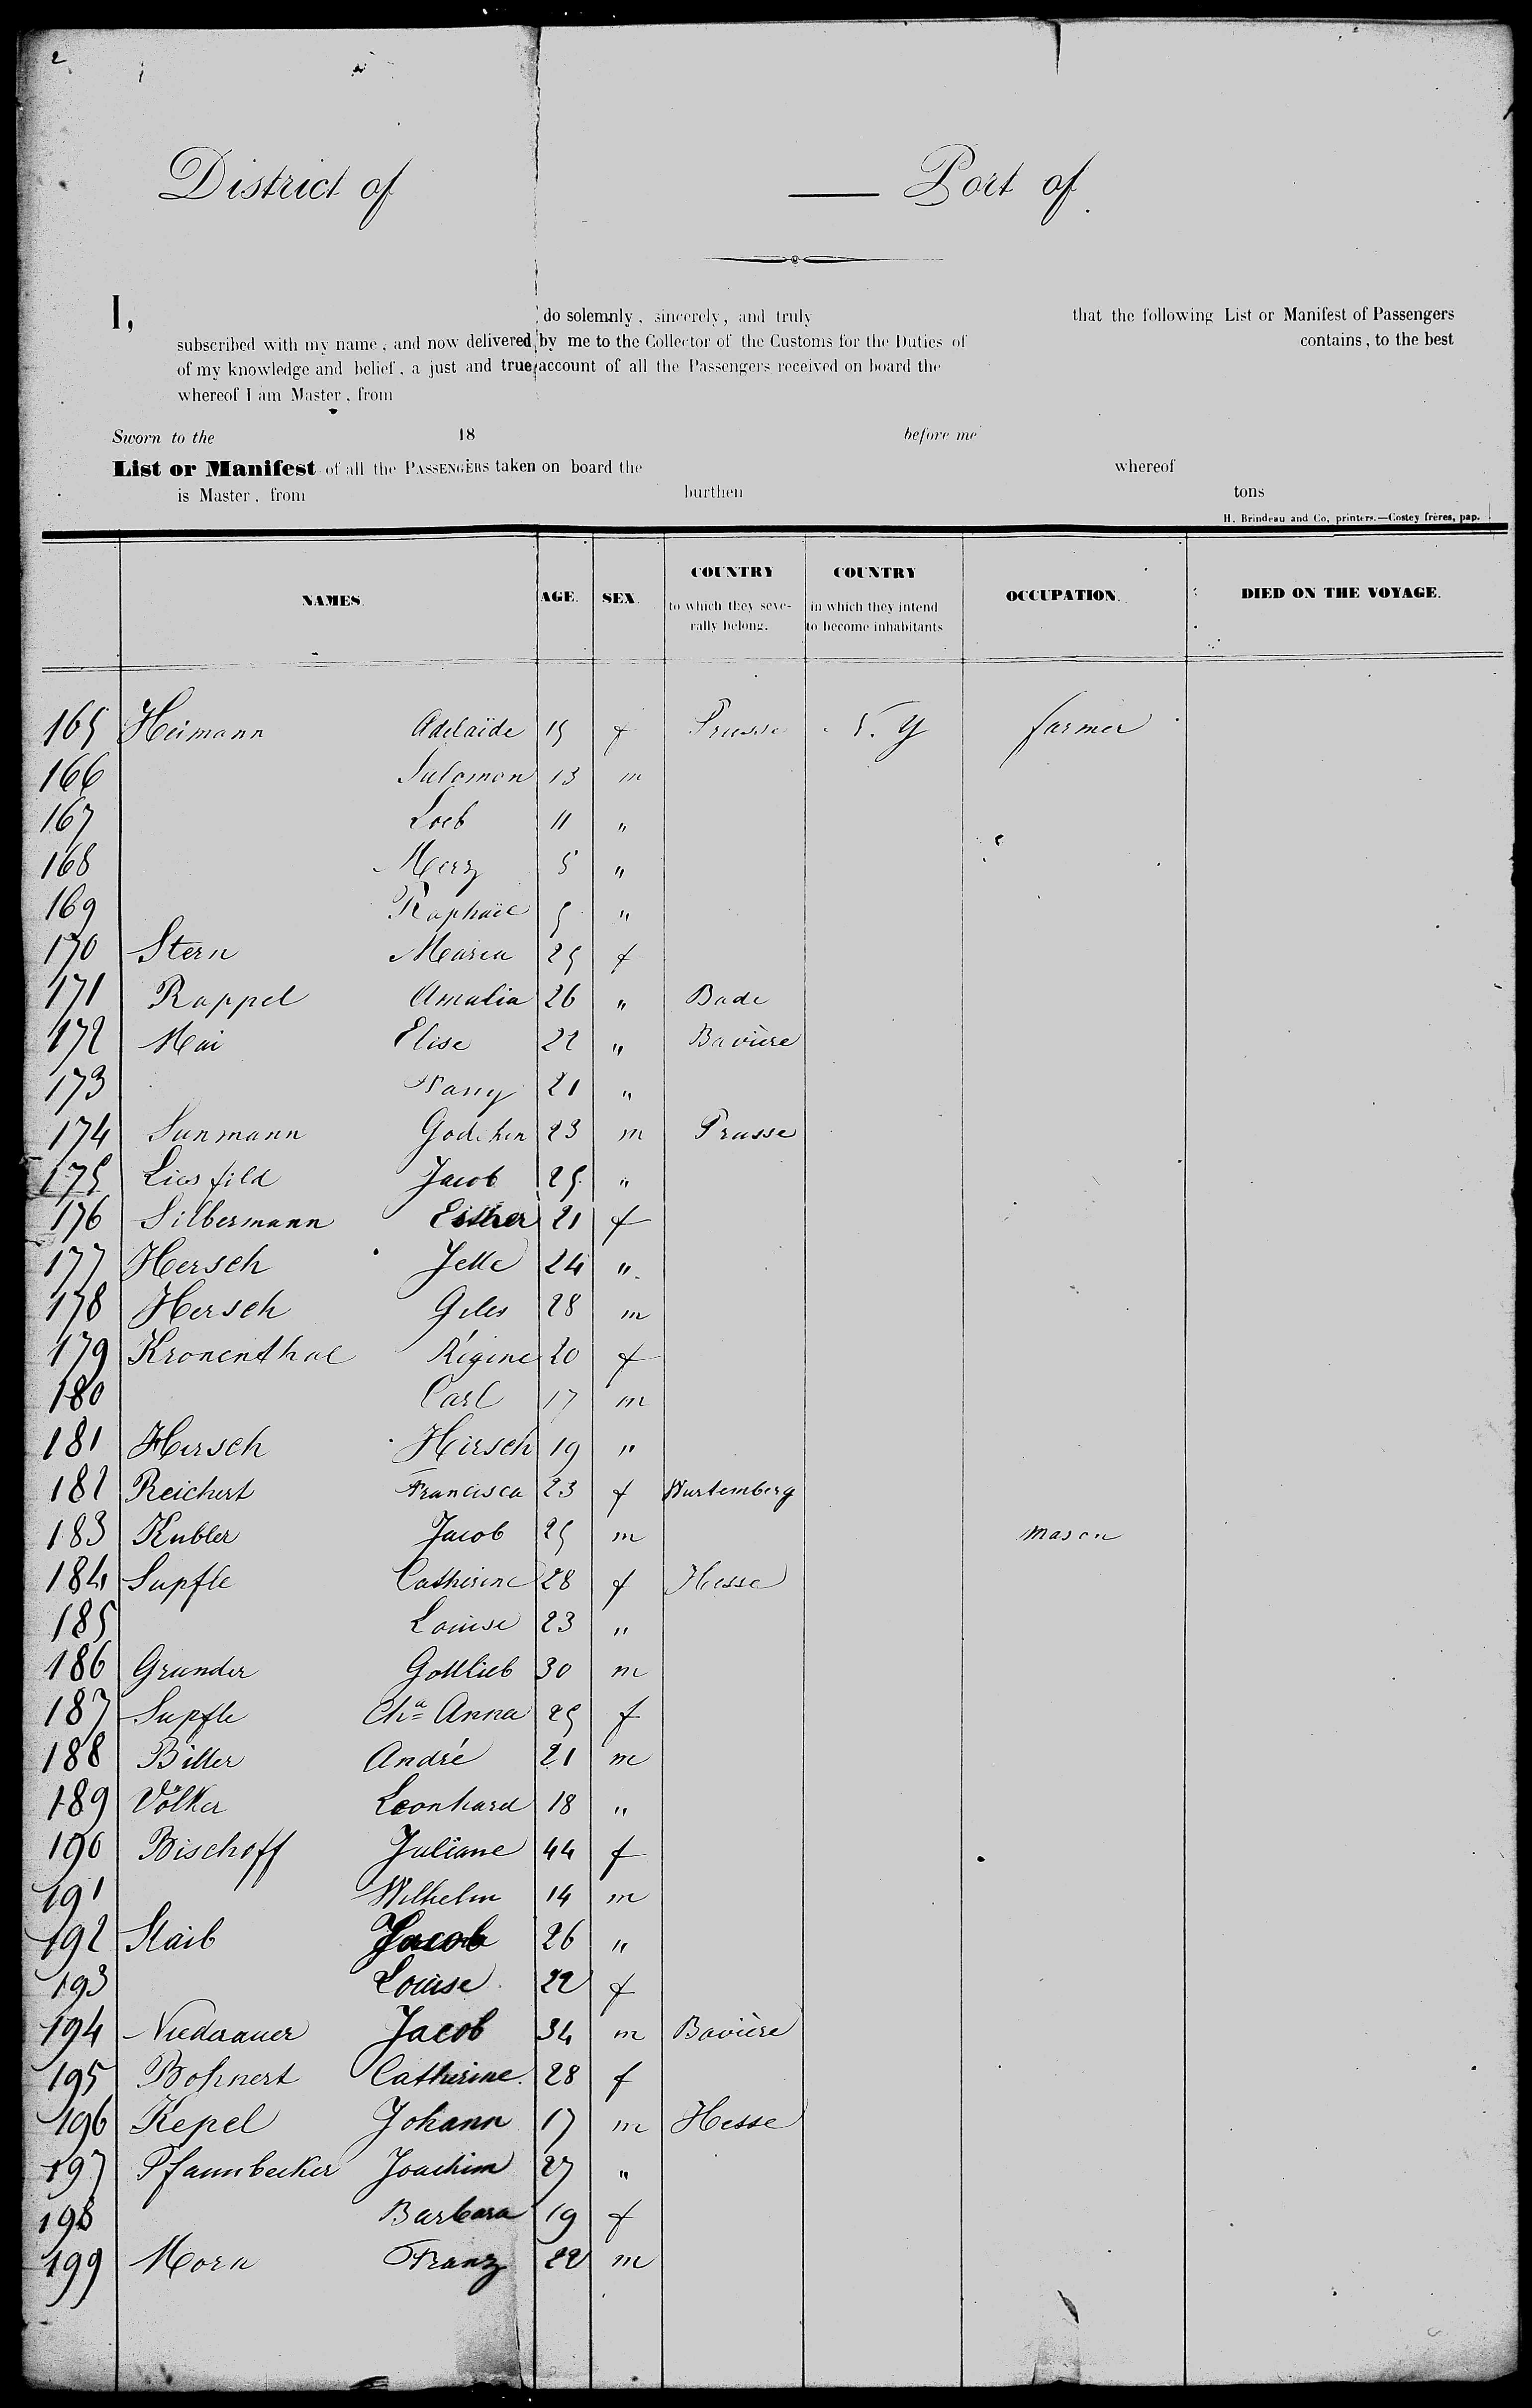 2
District of — Port of
I, do solemnly, sincerely, and truly that the following List or Manifest of Passengers
subscribed with my name, and now delivered by me to the Collector of the Customs for the Duties of contains, to the best
of my knowledge and belief, a just and true account of all the Passengers received on board the
whereof I am Master, from
Sworn to the 18 before me
List or Manifest of all the PASSENGERS taken on board the whereof
is Master, from burthen tons
H. Brindeau and Co, printers.—Costey frères, pap.
NAMES. AGE. SEX. COUNTRY to which they severally belong. COUNTRY in which they intend to become inhabitants OCCUPATION. DIED ON THE VOYAGE.
165 Heimann Adelaïde 15 f Prusse Y farmer
166 Salomon 13 m
167 Loeb 11 "
168 Merz 5 "
169 Raphaël 5 "
170 Stern Maria 25 f
171 Rappel Amalia 26 " Bade
172 Mai Elise 22 " Bavière
173 Fanny 21 "
174 Sunmann Godchen 23 m Prusse
175 Liesfild Jacob 25 "
176 Silbermann Esther 21 f
177 Hersch Jette 24 "
178 Hersch Giles 28 m
179 Kronenthal Régine 20 f
180 Carl 17 m
181 Hersch Hirsch 19 "
182 Reichert Francisca 23 f Wurtemberg
183 Kubler Jacob 25 m mason
184 Supfle Catherine 28 f Hesse
185 Louise 23 "
186 Grunder Gottlieb 30 m
187 Supfle Cha Anna 25 f
188 Bitter André 21 m
189 Völker Leonhard 18 "
190 Bischoff Juliane 44 f
191 Wilhelm 14 m
192 Staib Jacob 26 "
193 Louise 22 f
194 Niederauer Jacob 34 m Bavière
195 Bohnert Catherine 28 f
196 Kepel Johann 17 m Hesse
197 Pfannbecker Joachim 27 "
198 Barbara 19 f
199 Morn Franz 22 m